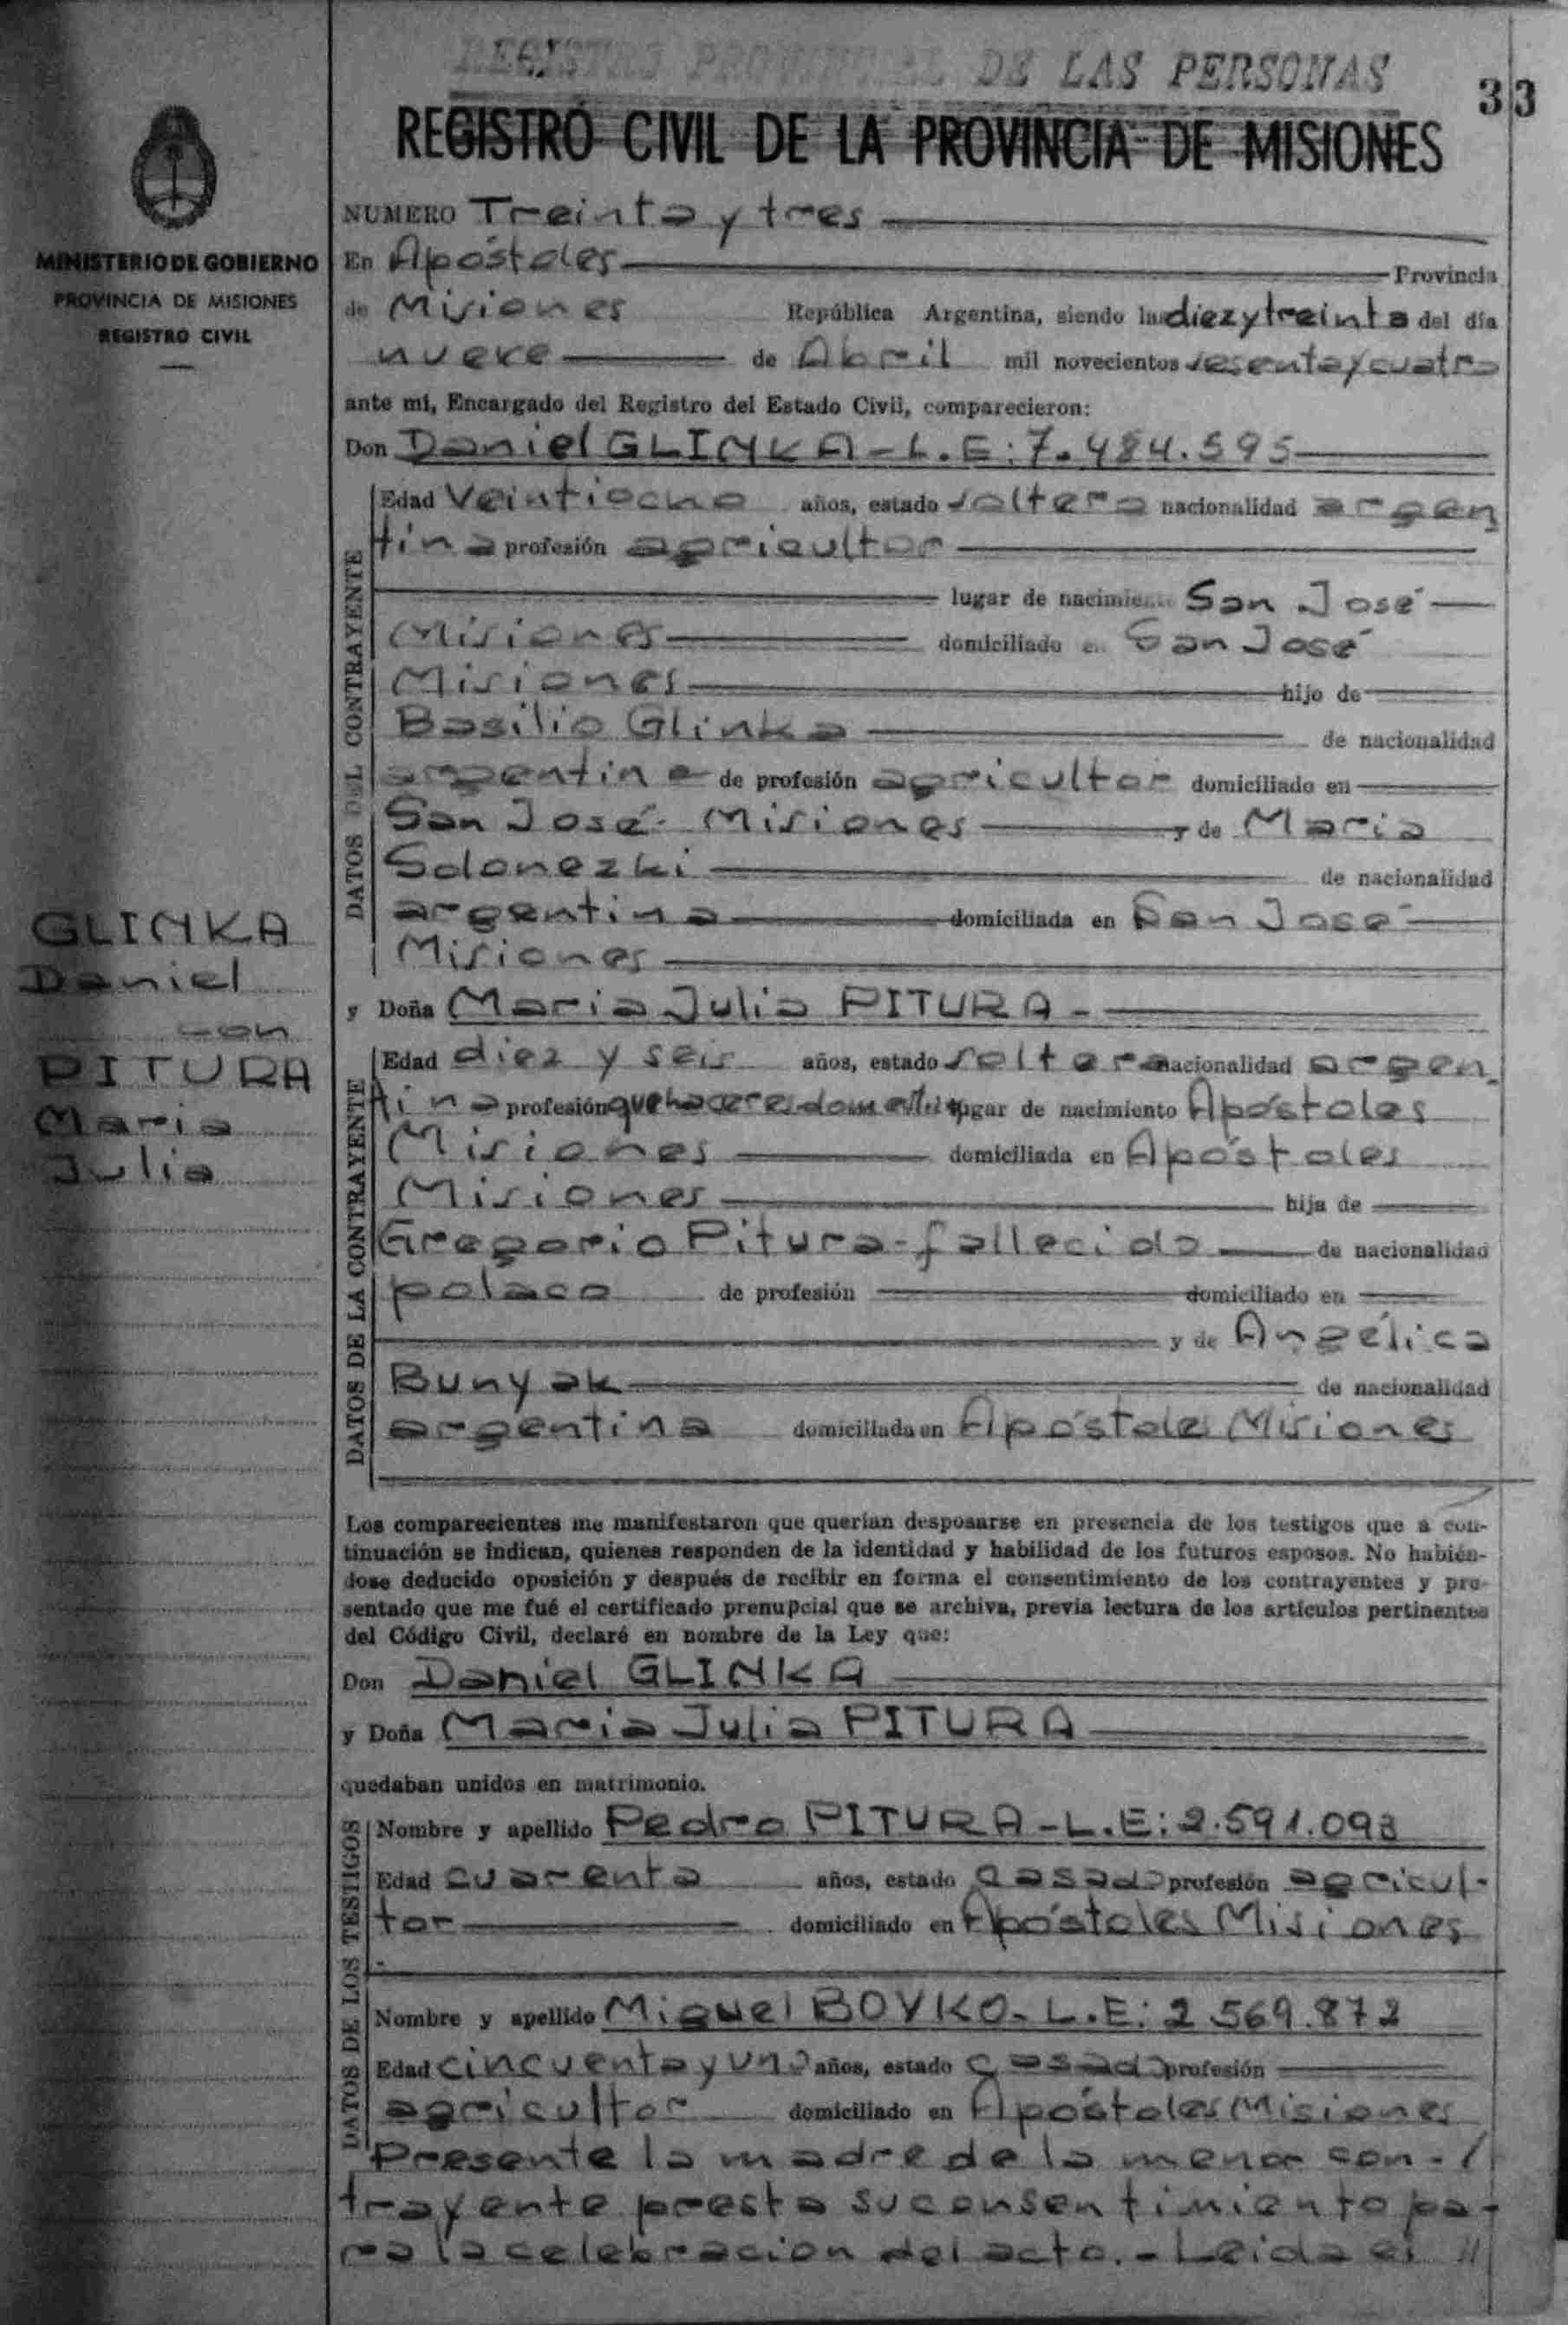 REGISTRO PROVINCIAL DE LAS PERSONAS
33
REGISTRO CIVIL DE LA PROVINCIA DE MISIONES
MINISTERIO DE GOBIERNO
PROVINCIA DE MISIONES
REGISTRO CIVIL
NUMERO Treinta y tres
En Apóstoles Provincia
de Misiones República Argentina, siendo las diez y treinta del día
nueve de Abril mil novecientos sesenta y cuatro
ante mi, Encargado del Registro del Estado Civil, comparecieron:
Don Daniel GLINKA - L.E: 7.484.595
DATOS DEL CONTRAYENTE
Edad Veintiocho años, estado soltero nacionalidad argen
tina profesión agricultor
lugar de nacimiento San José
Misiones domiciliado en San José
Misiones hijo de
Basilio Glinka de nacionalidad
argentina de profesión agricultor domiciliado en
San José - Misiones y de Maria
Solonezki de nacionalidad
argentina domiciliada en San José
Misiones
GLINKA
Daniel
con
PITURA
Maria
Julia
y Doña Maria Julia PITURA -
DATOS DE LA CONTRAYENTE
Edad diez y seis años, estado soltera nacionalidad argen
tina profesión quehaceres domesticos lugar de nacimiento Apóstoles
Misiones domiciliada en Apóstoles
Misiones hija de
Gregorio Pitura - fallecido de nacionalidad
polaco de profesión domiciliado en
y de Angélica
Bunyak de nacionalidad
argentina domiciliada en Apóstoles Misiones
Los comparecientes me manifestaron que querían desposarse en presencia de los testigos que a con-
tinuación se indican, quienes responden de la identidad y habilidad de los futuros esposos. No habién-
dose deducido oposición y después de recibir en forma el consentimiento de los contrayentes y pre-
sentado que me fué el certificado prenupcial que se archiva, previa lectura de los artículos pertinentes
del Código Civil, declaré en nombre de la Ley que:
Don Daniel GLINKA
y Doña Maria Julia PITURA
quedaban unidos en matrimonio.
DATOS DE LOS TESTIGOS
Nombre y apellido Pedro PITURA - L.E: 2.591.093
Edad cuarenta años, estado casado profesión agricul-
tor domiciliado en Apóstoles Misiones
Nombre y apellido Miguel BOYKO - L.E: 2.569.872
Edad cincuenta y uno años, estado casado profesión
agricultor domiciliado en Apóstoles Misiones
Presente la madre de la menor con- /
trayente presta su consentimiento pa-
ra la celebracion del acto. - Leida el //